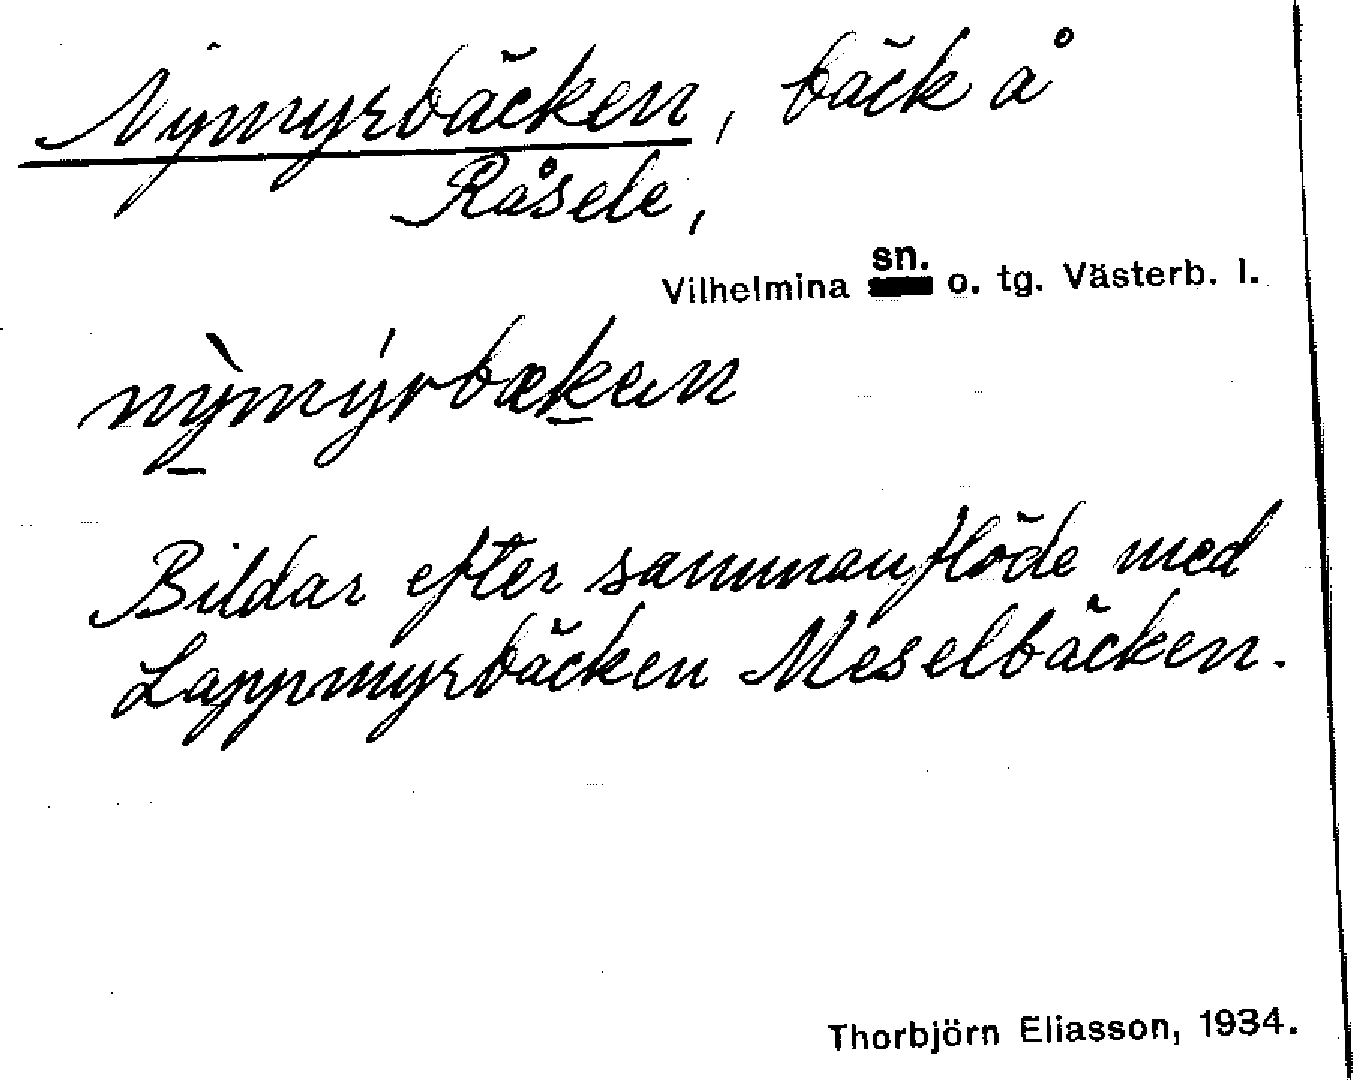 Nymyrbäcken, bäck å
Råsele,
Vilhelmina sn. o. tg. Västerb. l.
nỳmýrbæken
Bildar efter sammanflöde med
Lappmyrbäcken Meselbäcken.
Thorbjörn Eliasson, 1934.